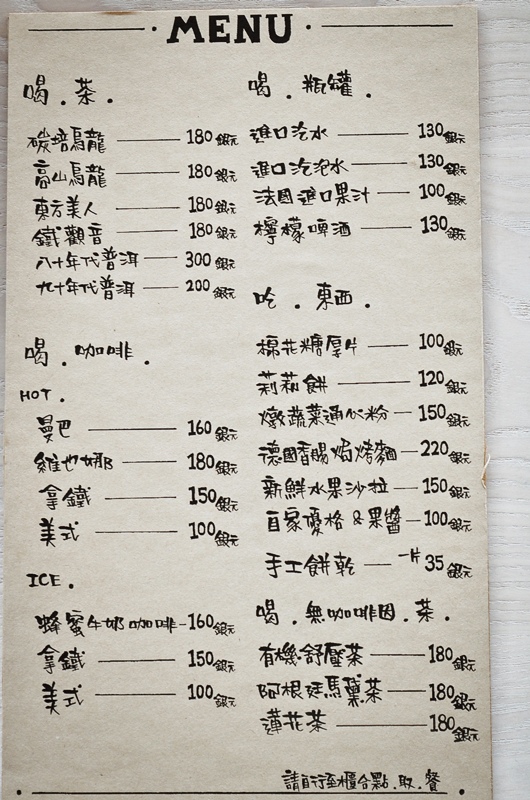 MENU
喝.茶.
碳培烏龍 180銀元
高山烏龍 180銀元
東方美人 180銀元
鐵觀音 180銀元
八十年代普洱 300銀元
九十年代普洱 200銀元
喝.咖啡.
HOT.
曼巴 160銀元
維也娜 180銀元
拿鐵 150銀元
美式 100銀元
ICE.
蜂蜜牛奶咖啡 160銀元
拿鐵 150銀元
美式 100銀元
喝.瓶罐.
進口汽水 130銀元
進口汽泡水 130銀元
法國進口果汁 100銀元
檸檬啤酒 130銀元
吃.東西.
棉花糖厚片 100銀元
莉莉餅 120銀元
燉蔬菜通心粉 150銀元
德國香腸焗烤麵 220銀元
新鮮水果沙拉 150銀元
自家優格&果醬 100銀元
手工餅乾 一片35銀元
喝.無咖啡因.茶.
有機舒壓茶 180銀元
阿根廷馬黛茶 180銀元
蓮花茶 180銀元
請自行至櫃台點.取.餐